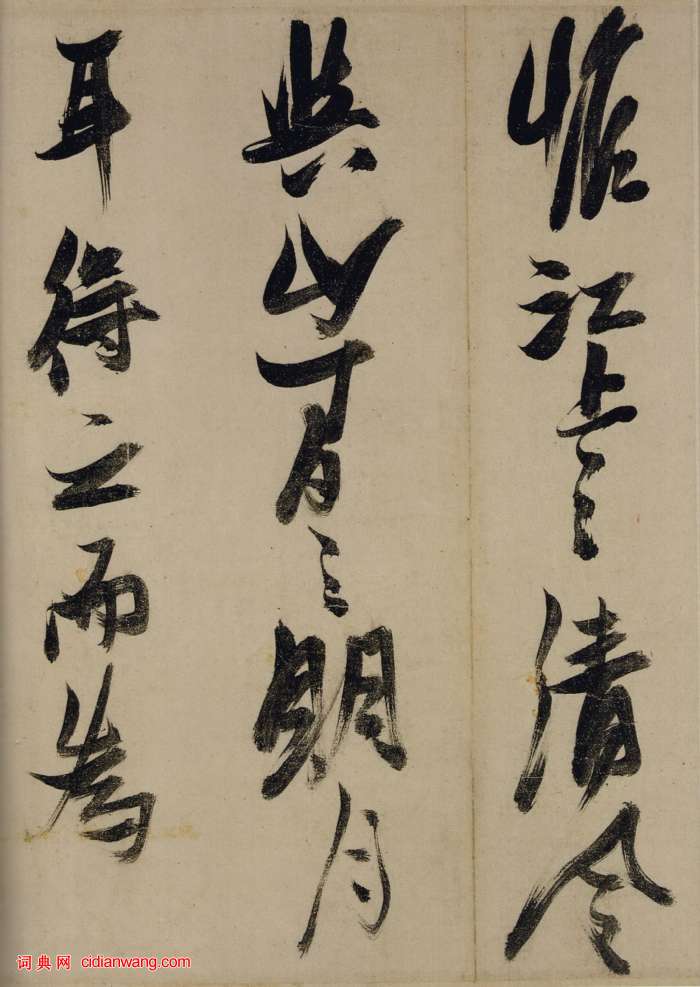 惟江上之清風
與山間之明月
耳得之而為
词典网 cidianwang.com